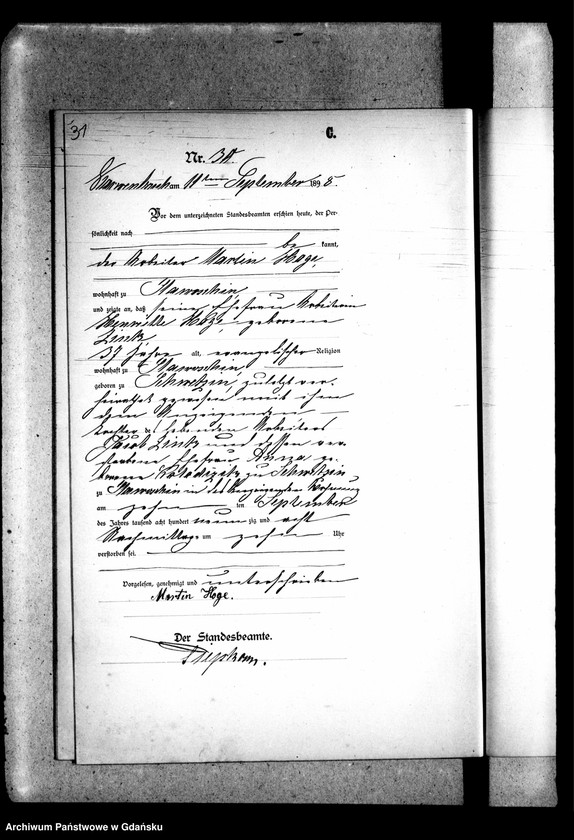 31
C.
Nr. 31.
am 11ten September 1898.
Vor dem unterzeichneten Standesbeamten erschien heute, der Per-
sönlichkeit nach
be kannt,
der Arbeiter Martin Hoge,
wohnhaft zu
und zeigte an, daß seine Ehefrau Arbeiterin
geborene
Link,
37 Jahre alt, evangelischer Religion
wohnhaft zu
geboren zu zuletzt ver-
heirathet gewesen mit ihm
dem Anzeigenden,
Tochter des lebenden Arbeiters
Jacob Link und dessen ver-
storbene Ehefrau Anna ge-
borene zu
zu in des Anzeigenden Wohnung
am zehnten September
des Jahrs tausend acht hundert neunzig und acht
Nachmittags um zehn Uhr
verstorben sei.
Vorgelesen, genehmigt und unterschrieben
Martin Hoge.
Der Standesbeamte.
Archiwum Państwowe w Gdańsku